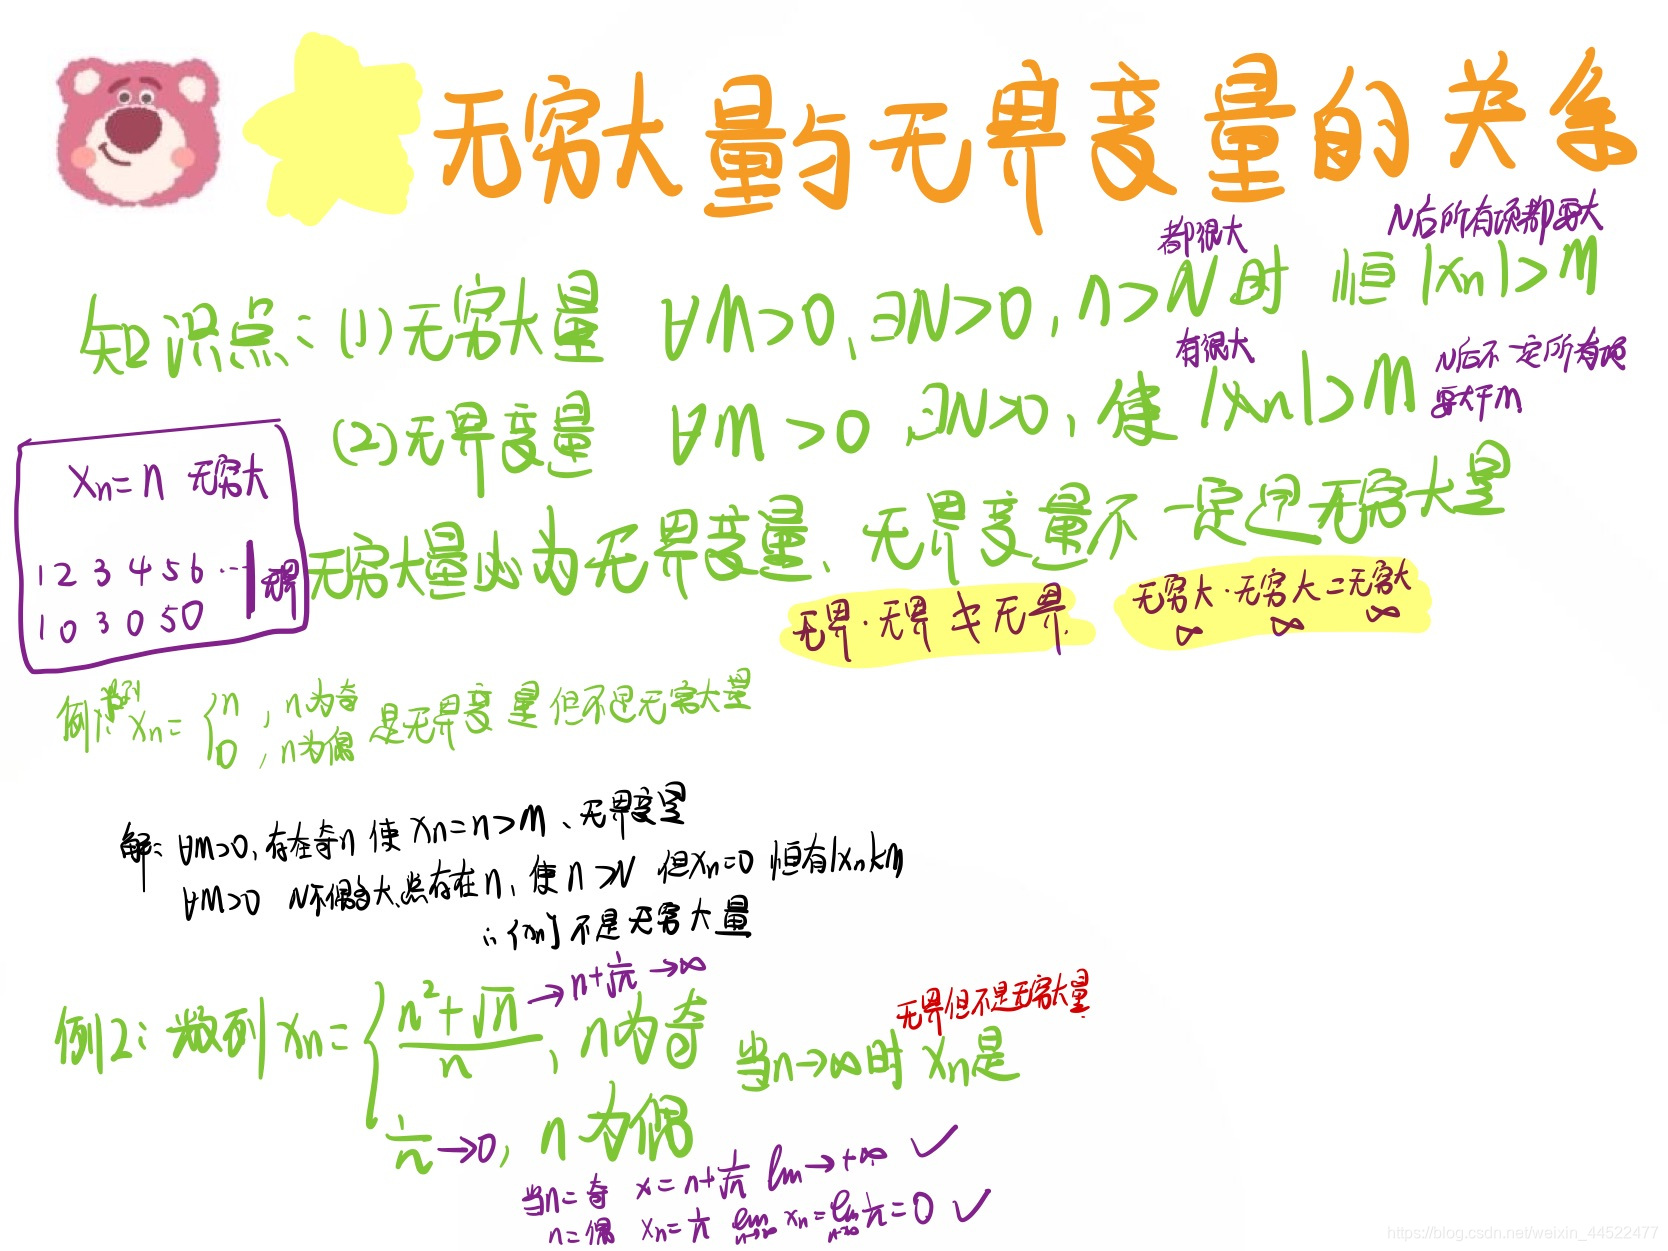 无穷大量与无界变量的关系
都很大
N后所有项都要大
知识点:(1)无穷大量 ∀M>0,∃N>0,n>N时 恒|xn|>M
有很大
N后不一定所有项
要大于M
(2)无界变量 ∀M>0 ∃N>0,使|xn|>M
xn=n 无穷大
1 2 3 4 5 6 … 无界
1 0 3 0 5 0
无穷大量必为无界变量、无界变量不一定是无穷大量
无界·无界 ≠ 无界
无穷大·无穷大=无穷大
∞ ∞ ∞
例1:数列 xn={n,n为奇
0,n为偶 是无界变量但不是无穷大量
解:∀M>0,存在奇n 使 xn=n>M、无界变量
∀M>0 N不论多大,总存在n,使n>N 但xn=0 恒有|xn|<M
∴{xn}不是无穷大量
→n+1/√n→∞
例2:数列xn={(n²+√n)/n,n为奇 当n→∞时 xn是
无界但不是无穷大量
1/n→0,n为偶
当n=奇 x=n+1/√n lim→+∞ ✓
n=偶 xn=1/n lim n→∞ xn=lim n→∞ 1/n=0 ✓
https://blog.csdn.net/weixin_44522477